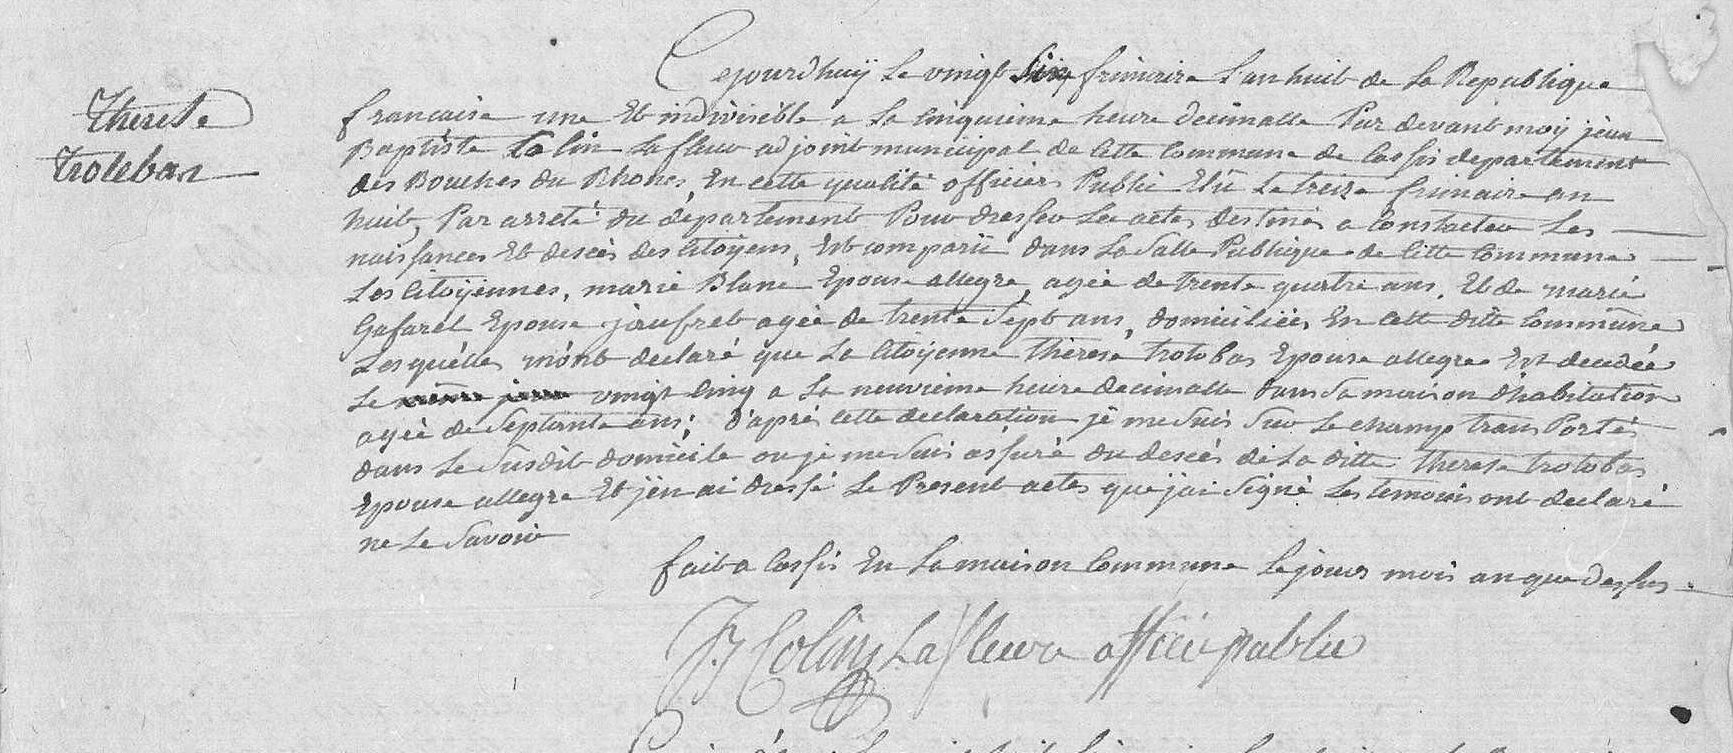 Therese
trotebas
Cejourdhuÿ Le vingt Six frimaire L'an huit de La Republique
francaise une Et indivisible a La Cinquieme heure decimalle Par devant moÿ jean
Baptiste Colin Lafleur adjoint municipal de Cette Commune de Cassis departement
des Bouches du Rhones, En cette qualité officier Public Elû Le treize frimaire an
huit, Par arreté du département Pour dresser Les actes destinés a Constater Les
naissances Et desces des Citoÿens, Est comparü dans La Salle Publique de Cette Commune
Les Citoÿennes, marie Blanc Epouse allegre, agée de trente quatre ans, Et de marie
Gafarel Epouse jaufret agée de trente Sept ans, domiciliées En Cette ditte Commune
Lesquelles m'ont declaré que La Citoÿenne thérese trotobas Epouse allegre Est decedée
Le vingt Cinq a La neuvieme heure decimalle dans Sa maison dhabitation
agée de Septante ans; d'aprés cette declaration je me Suis Sur Le champ transPortés
dans Le Susdit domicile ou je me Suis assuré du descés de La ditte therese trotobas
Epouse allegre Et j'en ai dressé Le Present actes que jai Signé Les temoins ont declaré
ne Le Savoir
fait a Cassis En La maison Commune Le jours mois an que dessus
JB Colin Lafleur officié publié